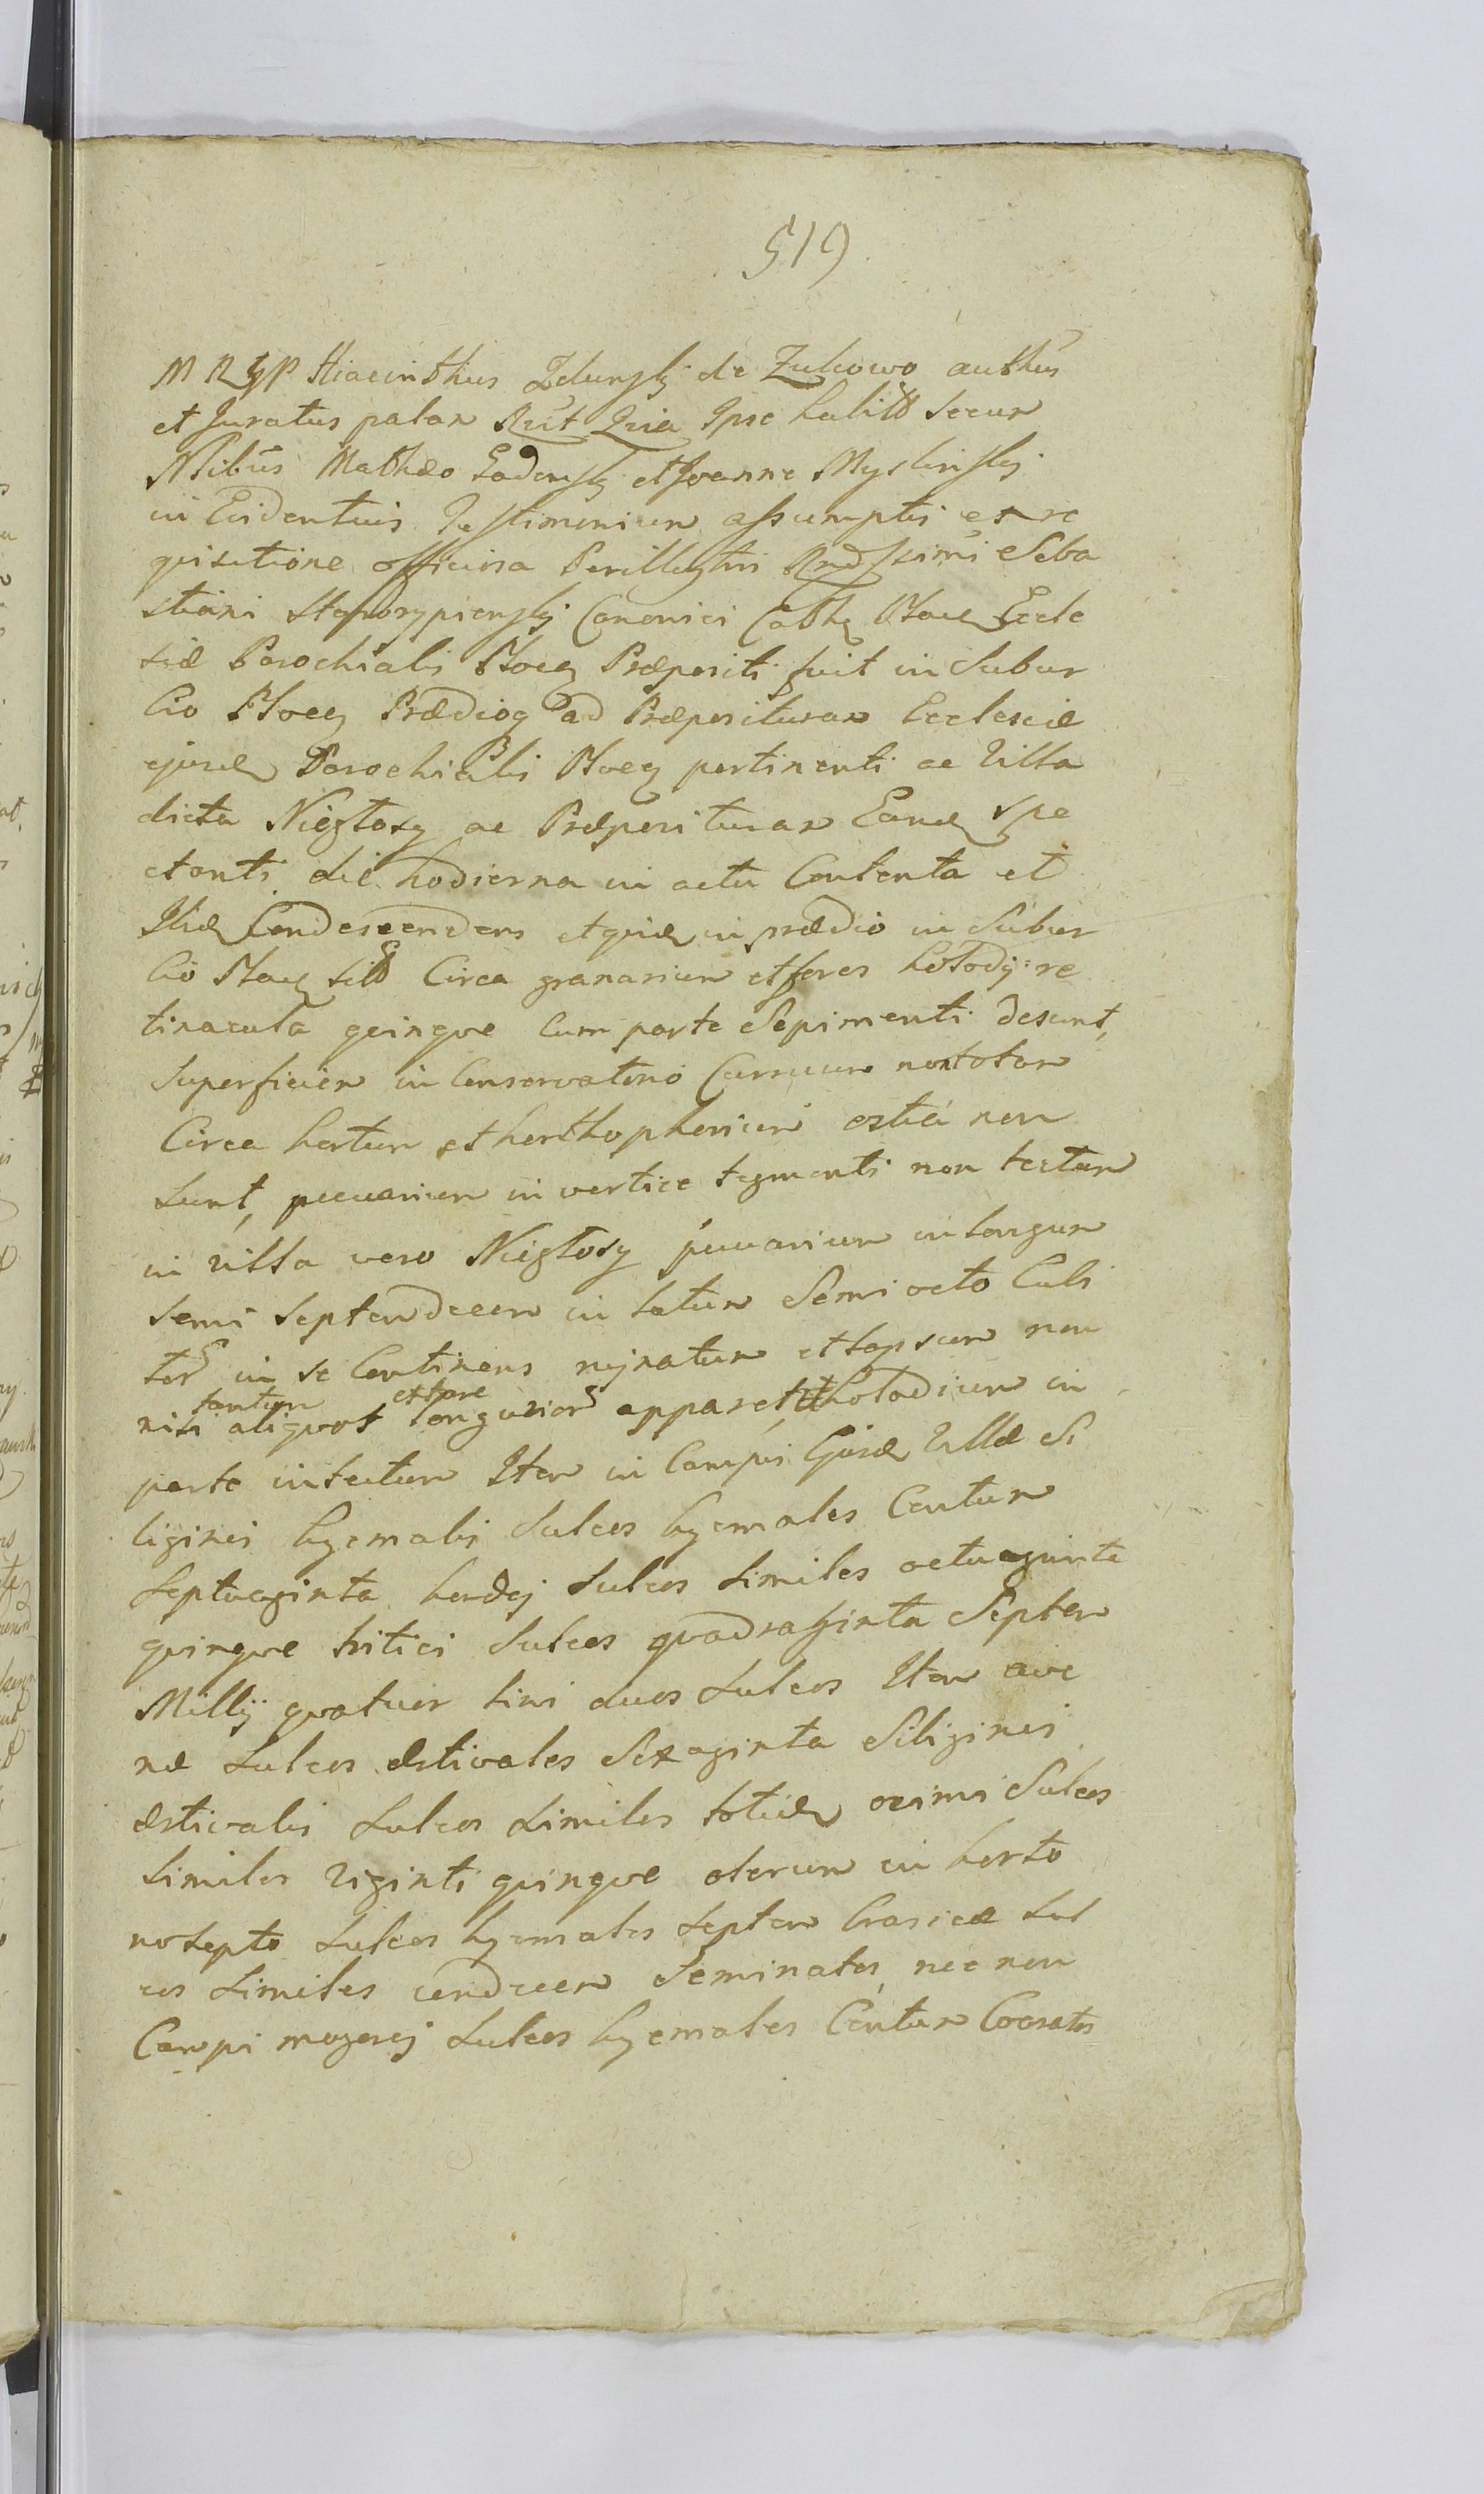 519
M R gP Hiacinthus Zdunsky de Zukowo authūs
et Juratus palam Rūt Quia Ipse habitō secum
Nlibūs Mathæo et Joanne Myslinsky
in Evidentius Testimonium assumptis ex re
quisitione officiosa Perillustris Rndssimi Seba
stiani Canonici Cathę Płocen Eccle
siæ Parochialis Płocen Præpositi fuit in Subur
bio Płocen Prædiog ad Præposituram Ecclesiæ
ejusd Parochialis Płocen pertinenti ac Villa
dicta Niegłosy ac Præposituram Eand spe
ctanti die hodierna in actu Contenta et
Ibid Condescendens et quid in prædio in Subur
bio Płocen sitō Circa granarium et fores hołody re
tinacula quinque Cum parte Sepimenti desunt,
Superficiem in Conservatorio Curruum non totam
Circa hortum et horthophorium ostia non
sunt, pecuarium in vertice tegmenti non tectum
in villa vero Niegłosy pecuarium in longum
semi Septemdecem in latum Semi octo Cubi
tor in se Continens rujnatum et lapsum non
tantum et stare
nisi aliquot longurior apparet, hołodium in
parte intectum Item in Campis Ejusd Villæ Si
liginis hyemalis Sulcos hyemales Centum
Septuaginta hordej Sulcos similes octuaginta
quinque tritici Sulcos quadraginta Septem
Millij quatuor lini duos Sulcos Item ave
næ Sulcos æstivales Sexaginta Siliginis
æstivalis Sulcos similes totid ozimi Sulcos
similes Viginti quinque olerum in horto
nosepto Sulcos hyemales septem brasicæ Sul
cos similes undecem Seminatos, nec non
Campi magesej Sulcos hyemales Centum